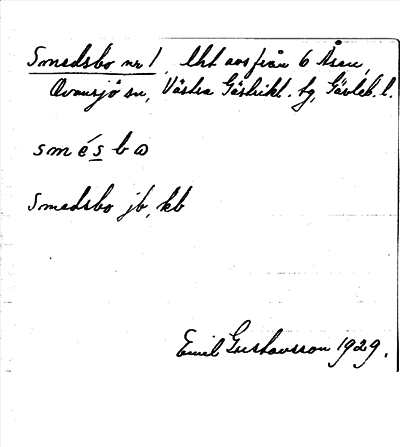 Smedsbo nr 1, lht avs från 6 Åsen,
Ovansjö sn, Västra Gästrikl. tg, Gävleb. l.
smésbω
Smedsbo jb, kb
Emil Gustavsson 1929.